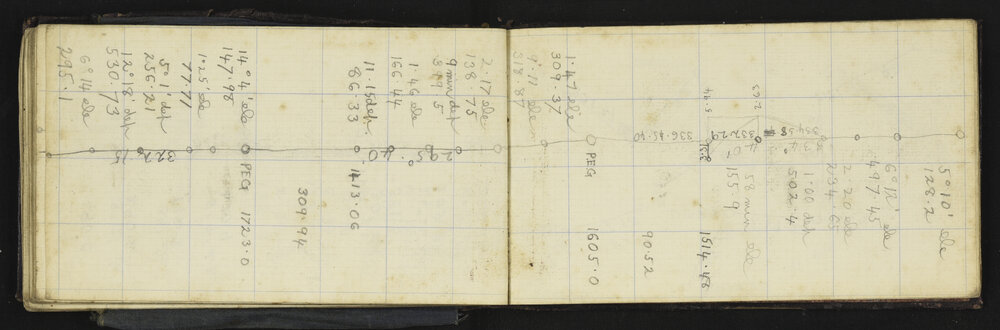 5° 10' ele
128.2
6° 12' ele
497.45
2.20 ele
234.65
1.00 dep
502.4
334.58
34°
58 min ele
155.9
57.2
332.29
40'
46.5
TSR
1514.48
336.45.40
9052
PEG 1605.0
1.47 ele
309.37
318.87
2.17 ele
138.75
9 min dep
349.5
295°
1.46 ele
166.44
40'
11.15 dep
86.33
1413.06
309.94
14° 4' ele
147.98
PEG 1723.0
1° 25' ele
77.71
5° 1' dep
256.21
322
12° 18' dep
530.73
15
6° 14 ele
295.1